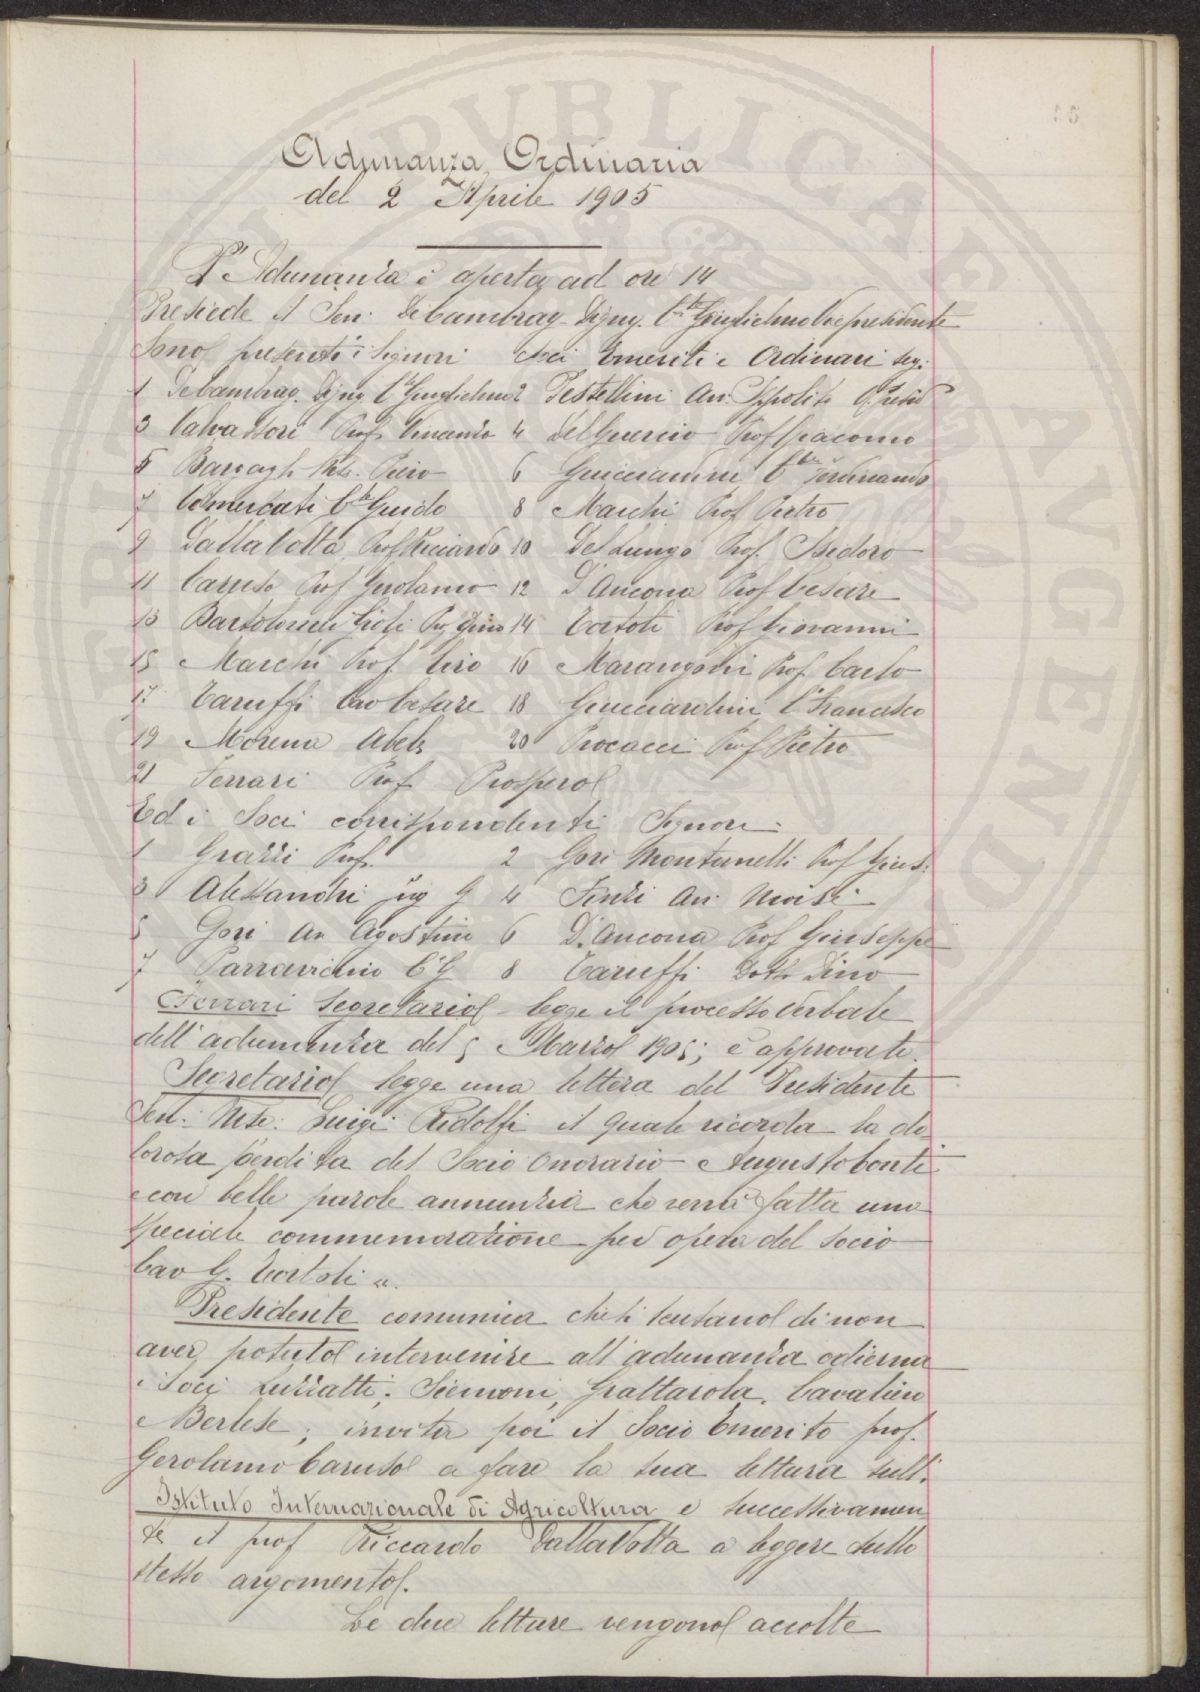 Adunanza Ordinaria
del 2 Aprile 1905
L'Adunanza è aperta ad ore 14
Presiede il Sen. De Cambray-Digny Cte Guglielmo Vicepresidente
Sono presenti i Signori Soci Emeriti e Ordinari seg.
1 De Cambray-Digny Cte Guglielmo 2 Pestellini Av. Ippolito
3 Valvassori Prof. Vincenzo 4 Del Guercio Prof Giacomo
5 Bargagli Piero 6 Guicciardini Cte Ferdinando
7 Comucati Cte Guido 8 Marchi Prof Pietro
9 Dalla Volta Prof Riccardo 10 Del Lungo Prof. Isidoro
11 Caruso Prof Girolamo 12 D'Ancona Prof Cesare
13 Bartolomei Gioli Prof Gino 14 Tortoli Prof Giovanni
15 Marchi Prof. Ciro 16 Marangoni Prof. Carlo
17. Taruffi Cav Cesare 18 Guicciardini Cte Francesco
19 Morena Abele 20 Procacci Prof Pietro
21 Ferrari Prof Prospero
Ed i Soci corrispondenti Signori:
1 Grazzi Prof. 2 Gori Montanelli Prof Gius:
3 Alessandri ing G 4 Finzi Av. Moisè
5 Gori Av Agostino 6 D'Ancona Prof Giuseppe
7 Parravicino Cte G 8 Taruffi Dott Dino
Ferrari Segretario legge il processo verbale
dell'adunanza del 5 Marzo 1905; è approvato.
Segretario legge una lettera del Presidente
Sen. Mse. Luigi Ridolfi il quale ricorda la do-
lorosa perdita del Socio Onorario Augusto Conti
e con belle parole annunzia che verrà fatta una
speciale commemorazione per opera del socio
Cav G. Tortoli
Presidente comunica che si scusano di non
aver potuto intervenire all'adunanza odierna
i Soci Luzzatti, Siemoni, Grattarola, Cavalieri
Berlese; invita poi il Socio Emerito prof.
Gerolamo Caruso a fare la sua lettura sull'
Istituto Internazionale di Agricoltura e successivamen
te il prof Riccardo Dalla Volta a leggere sullo
stesso argomento.
Le due letture vengono accolte